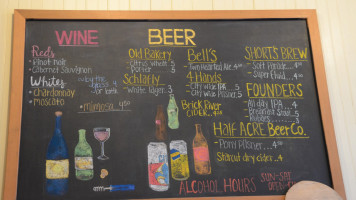 WINE
BEER
Reds
• Pinot Noir
• Cabernet Sauvignon
Whites
• Chardonnay
• Moscato
by the glass
4 for both
• mimosa 4.50
Old Bakery
• Citrus Wheat 5
• Porter 5
Schlafly
• White lager 3
Bell's
• Two Hearted Ale 4
4 Hands
• City Wide IPA 5
• City Wide Pilsner 5
Brick River
CIDER 4
SHORTS BREW
- Soft Parade 4.50
FOUNDERS
• All day IPA 4
• Breakfast Stout 5
HALF ACRE Beer Co.
• Pony Pilsner 4
Starcut dry cider 4
ALCOHOL HOURS
SUN-SAT